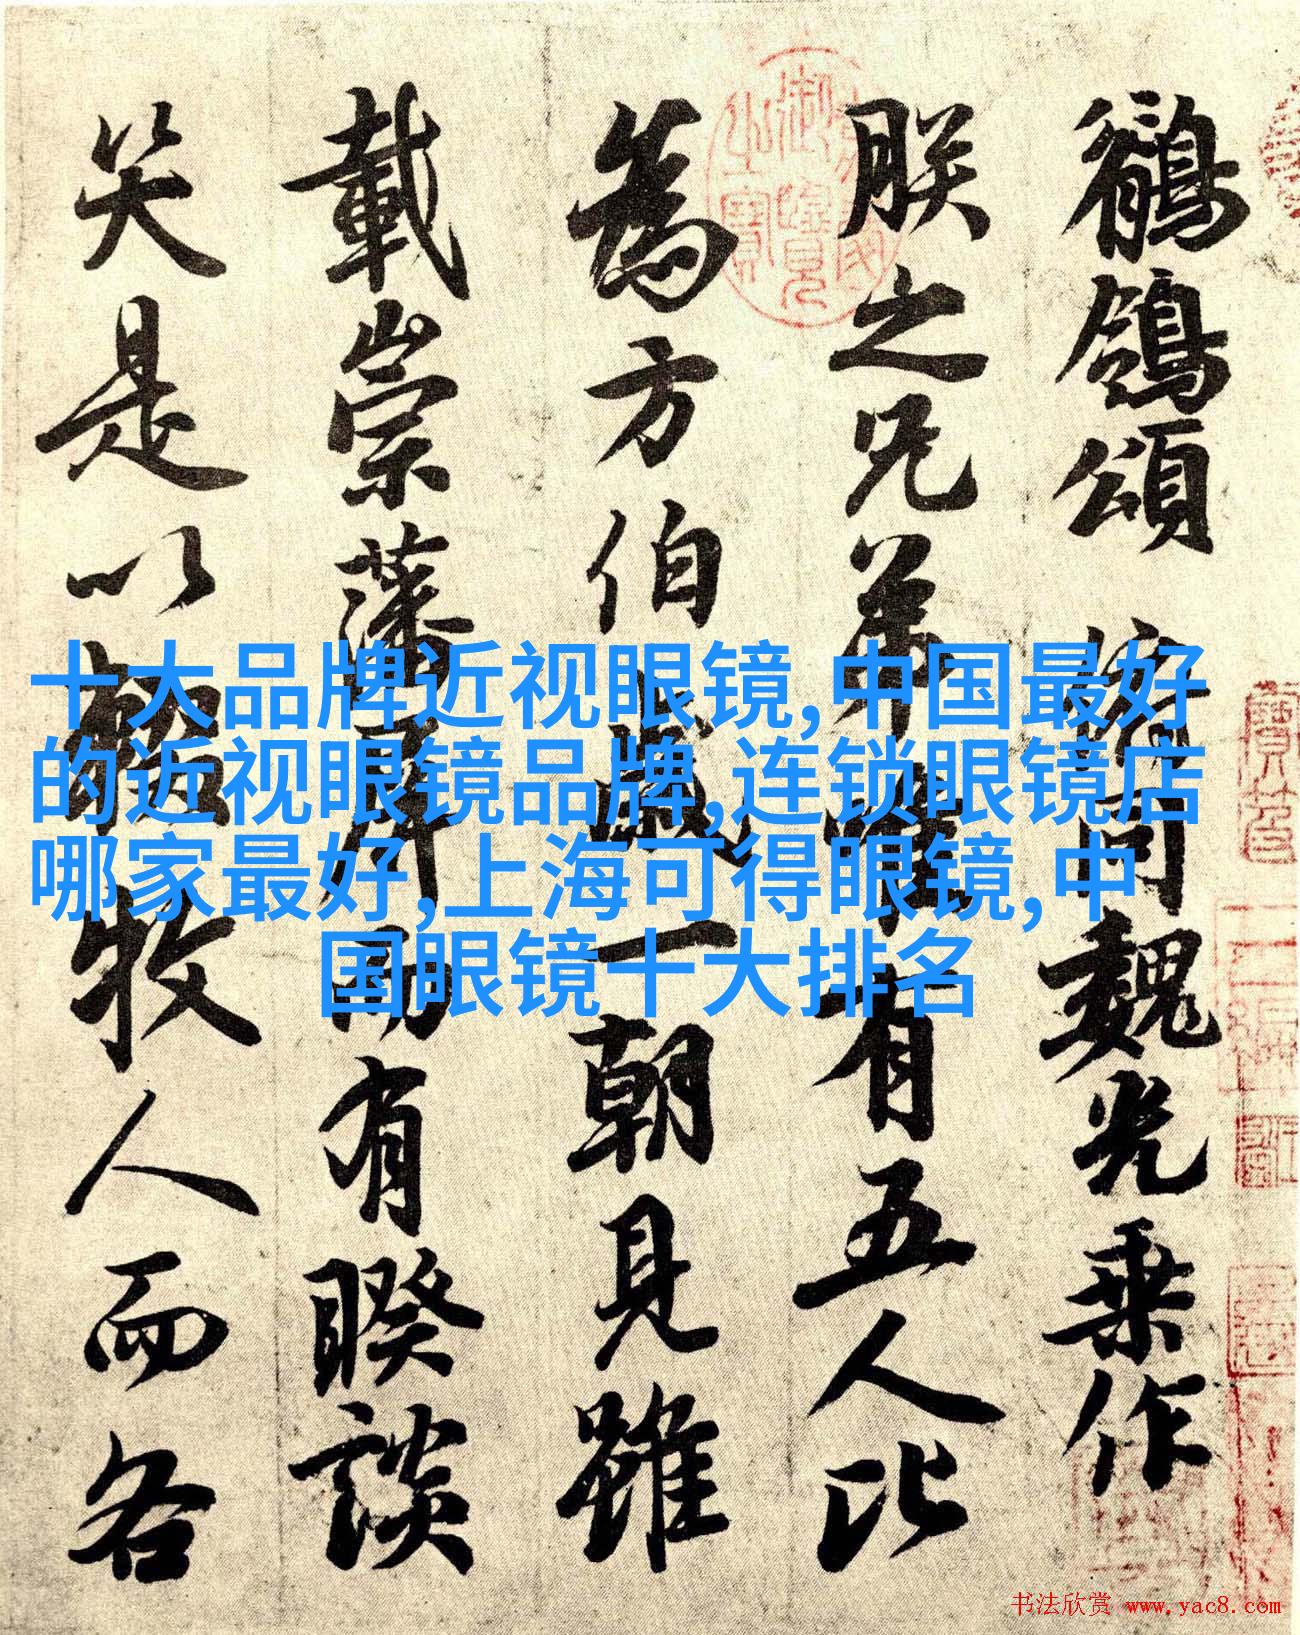 鶺鴒頌 俯同魏光乘作
朕之兄弟唯有五人比
為方伯歲一朝見雖
載崇藩屏而有睽談
笑是以輟牧人而各
十大品牌近视眼镜,中国最好
的近视眼镜品牌,连锁眼镜店
哪家最好,上海可得眼镜,中
国眼镜十大排名
书法欣赏 www.yac8.com